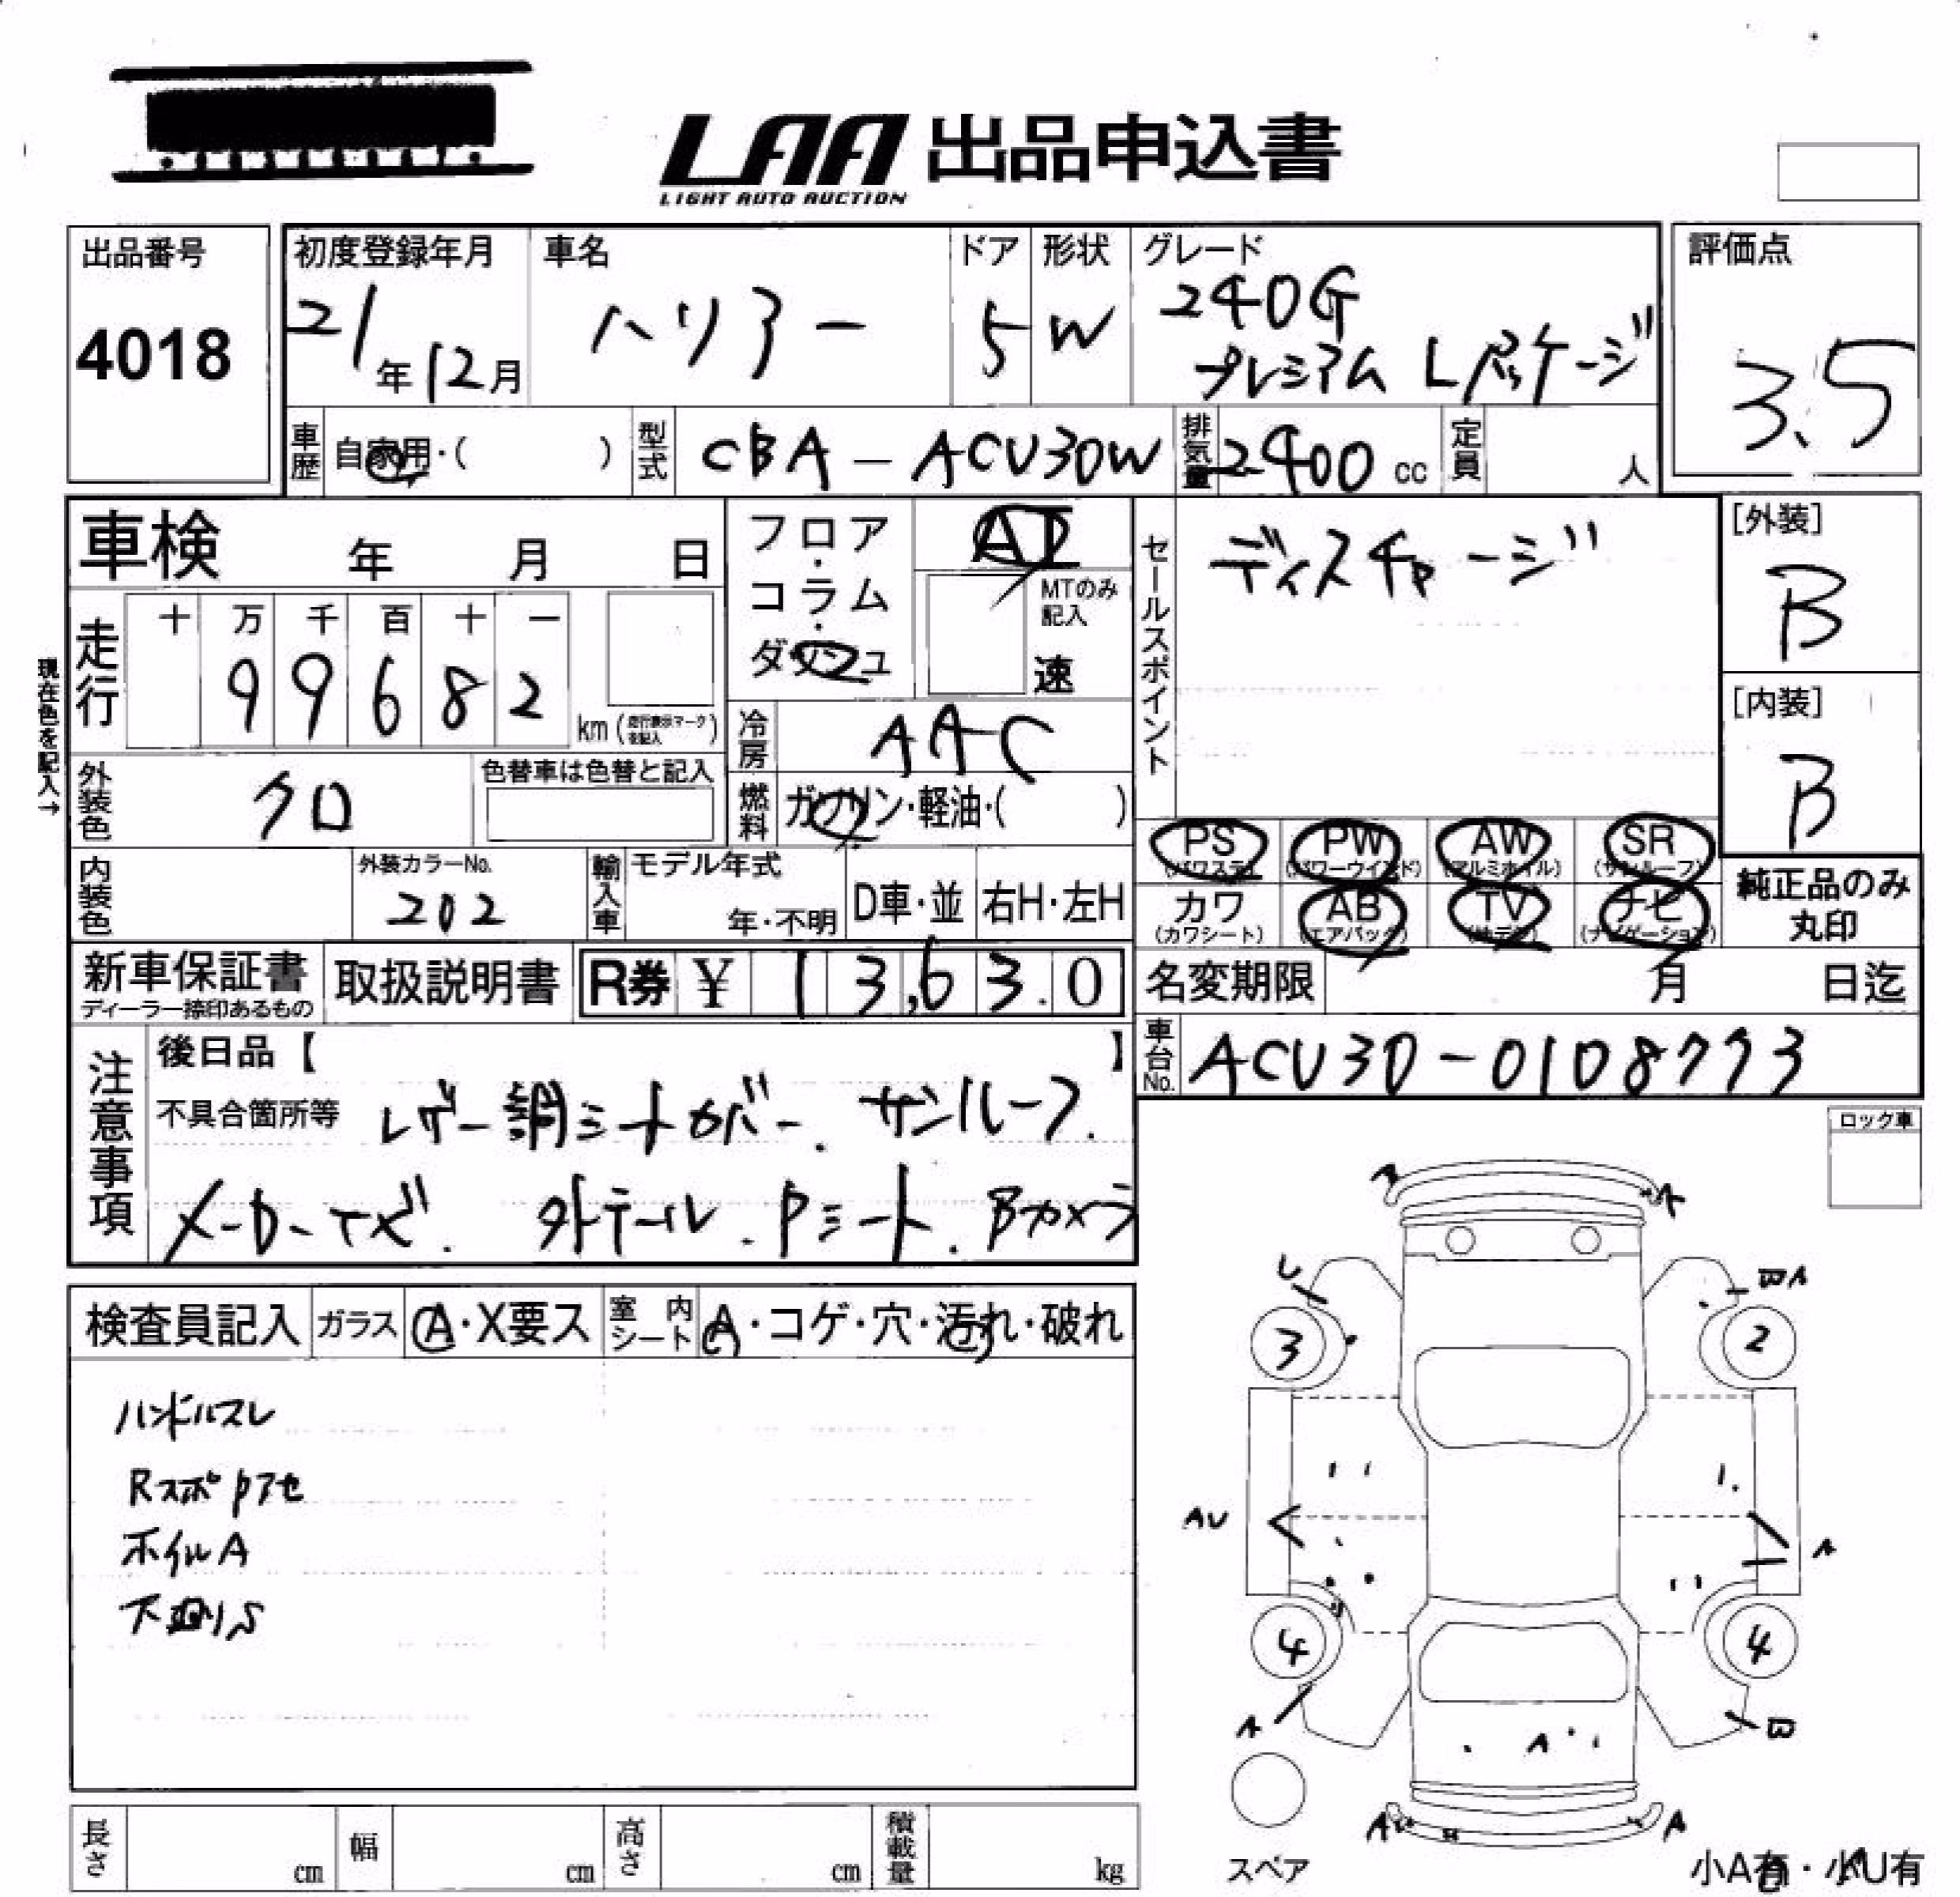 LAA 出品申込書
LIGHT AUTO AUCTION
出品番号
4018
初度登録年月
21年12月
車名
ハリアー
ドア
5
形状
W
グレード
240G
プレミアム Lパッケージ
評価点
3.5
車歴 自家用・( )
型式 CBA-ACU30W
排気量 2400 cc
定員 人
車検 年 月 日
フロア・コラム・ダッシュ
AT
MTのみ記入
速
セールスポイント
ディスチャージ
[外装]
B
[内装]
B
現在色を記入→
走行
十 万 千 百 十 一
9 9 6 8 2
km (走行表示マークを記入)
冷房 AAC
外装色 クロ
色替車は色替と記入
燃料 ガソリン・軽油・( )
PS (パワステ)
PW (パワーウインド)
AW (アルミホイル)
SR (サンルーフ)
内装色
外装カラーNo.
202
輸入車 モデル年式
年・不明
D車・並
右H・左H
カワ (カワシート)
AB (エアバック)
TV
ナビ (ナビゲーション)
純正品のみ
丸印
新車保証書
ディーラー捺印あるもの
取扱説明書
R券 ¥ 13,630
名変期限 月 日迄
車台No. ACU30-0108773
注意事項
後日品【 】
不具合箇所等 レザー調シートカバー. サンルーフ.
メーローTズ. 外テール. Pシート. Bカメラ
ロック車
検査員記入
ガラス
A・X要ス
室内シート
A・コゲ・穴・汚れ・破れ
ハンドルスレ
Rスポ
ホイルA
下廻りS
A
A
U
BA
3
2
AU
A
4
4
A
B
A
A
A
スペア
小A有・小U有
長さ cm
幅 cm
高さ cm
積載量 kg